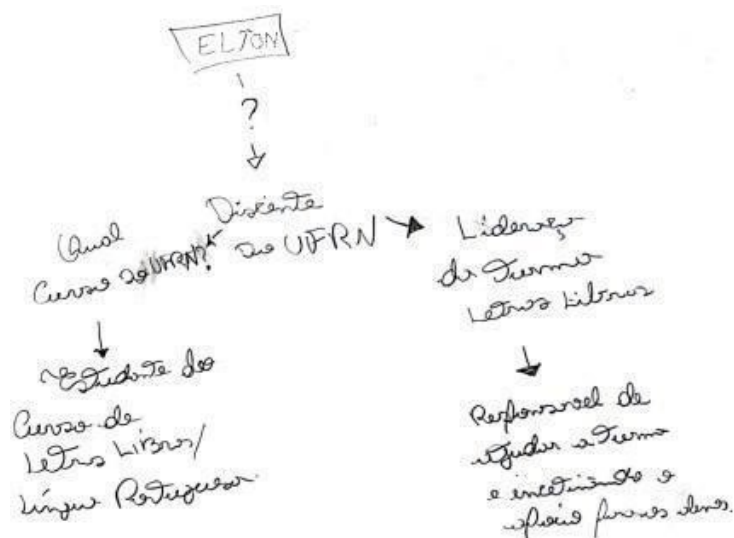 ELTON
?
Discente
do UFRN
Qual
Curso do UFRN?
Estudante do
Curso de
Letras Libras/
Língua Portuguesa.
Liderança
da Turma
Letras Libras
Responsavel de
ajudar a Turma
e incetivando o
apoio